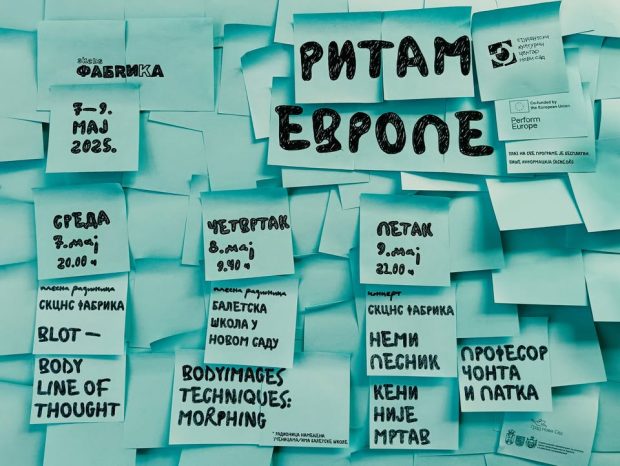 skcns
ФАБRИКА
7–9.
МАЈ
2025.
РИТАМ
ЕВРОПЕ
СТУДЕНТСКИ
КУЛТУРНИ
ЦЕНТАР
НОВИ САД
Co-funded by
the European Union
Perform
Europe
УЛАЗ НА СВЕ ПРОГРАМЕ ЈЕ БЕСПЛАТАН.
ВИШЕ ИНФОРМАЦИЈА SKCNS.ORG
СРЕДА
7. мај
20.00 ч
плесна радионица
СКЦНС ФАБРИКА
BLOT –
BODY
LINE OF
THOUGHT
ЧЕТВРТАК
8. мај
9.40 ч
плесна радионица
БАЛЕТСКА
ШКОЛА У
НОВОМ САДУ
BODYIMAGES
TECHNIQUES:
MORPHING
* РАДИОНИЦА НАМЕЊЕНА
УЧЕНИЦИМА/АМА БАЛЕТСКЕ ШКОЛЕ
ПЕТАК
9. мај
21.00 ч
концерт
СКЦНС ФАБРИКА
НЕМИ
ПЕСНИК
КЕНИ
НИЈЕ
МРТАВ
ПРОФЕСОР
ЧОНТА
И ПАТКА
Град Нови Сад